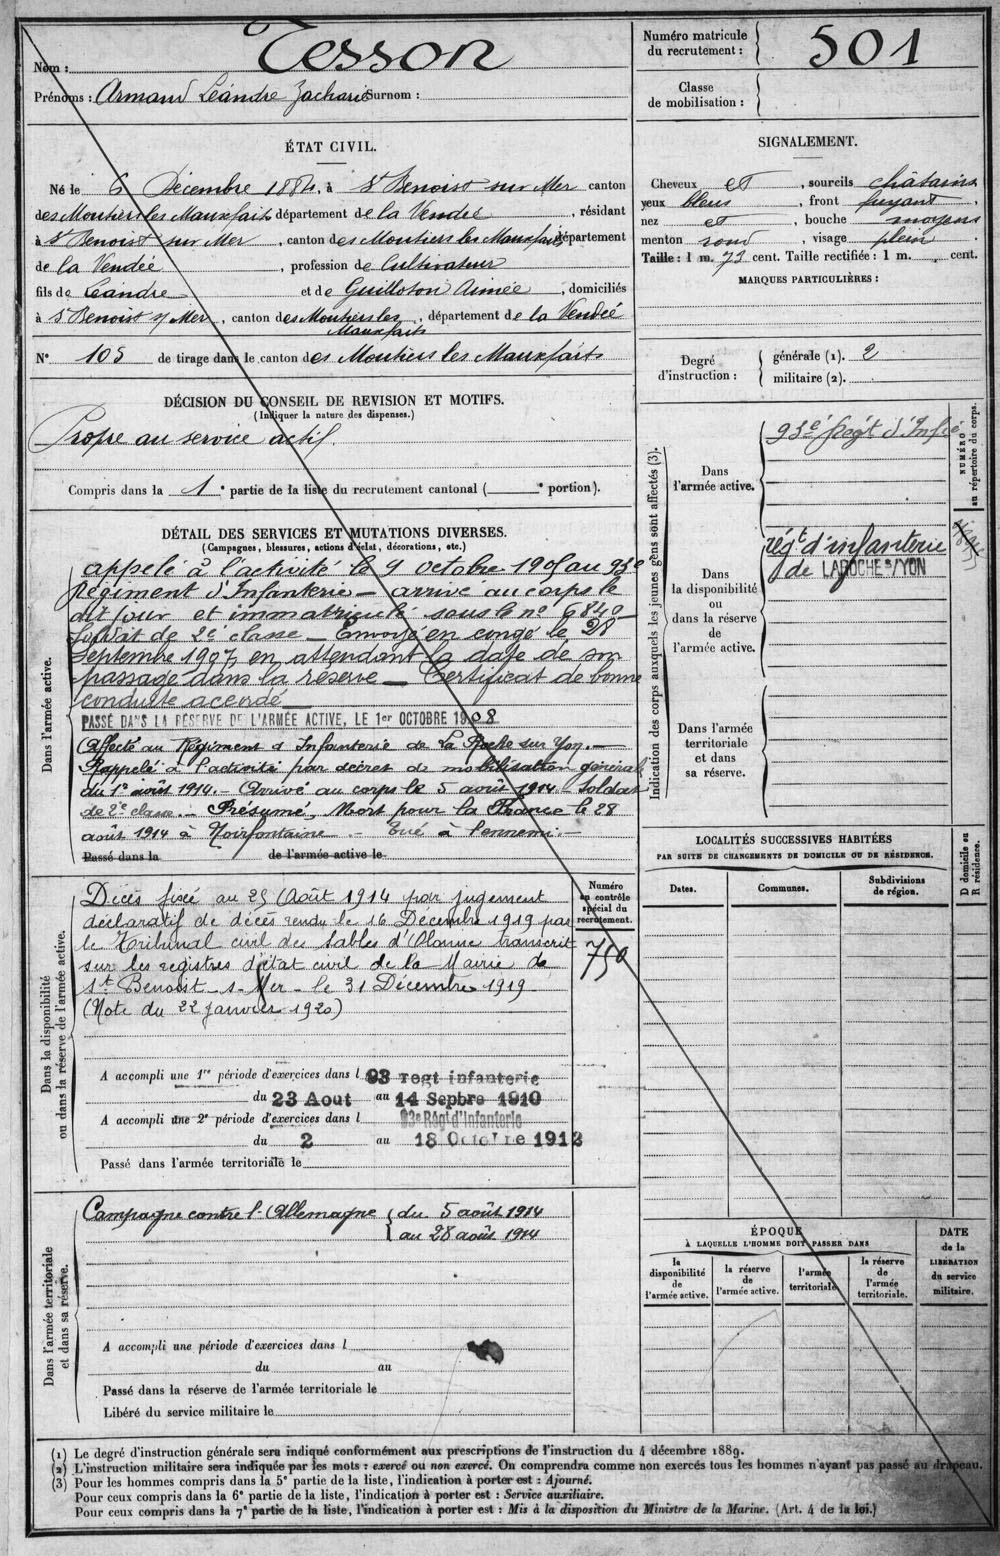 Nom : Tesson
Prénoms : Armand Léandre Zacharie Surnom :
Numéro matricule du recrutement : 501
Classe de mobilisation :
ÉTAT CIVIL.
Né le 6 Décembre 1884, à St Benoist sur Mer canton
des Moutiers les Mauxfaits département de la Vendée, résidant
à St Benoist sur Mer, canton des Moutiers les Mauxfaits département
de la Vendée, profession de Cultivateur
fils de Léandre et de Guilloton Aimée, domiciliés
à St Benoist s/ Mer, canton des Moutiers les Mauxfaits, département de la Vendée
N° 105 de tirage dans le canton des Moutiers les Mauxfaits
SIGNALEMENT.
Cheveux et, sourcils châtains
yeux bleus, front fuyant,
nez et, bouche moyens
menton rond, visage plein.
Taille : 1 m. 73 cent. Taille rectifiée : 1 m. cent.
MARQUES PARTICULIÈRES :
Degré d'instruction :
générale (1). 2
militaire (2).
DÉCISION DU CONSEIL DE REVISION ET MOTIFS.
(Indiquer la nature des dispenses.)
Propre au service actif.
Compris dans la 1e partie de la liste du recrutement cantonal ( e portion).
DÉTAIL DES SERVICES ET MUTATIONS DIVERSES.
(Campagnes, blessures, actions d'éclat, décorations, etc.)
Dans l'armée active.
appelé à l'activité le 9 octobre 1905 au 93e
Régiment d'Infanterie – arrivé au corps le
dit jour et immatriculé sous le n° 6840 –
Soldat de 2e classe – Envoyé en congé le 28
septembre 1907, en attendant la date de son
passage dans la réserve – Certificat de bonne
conduite accordé
PASSÉ DANS LA RÉSERVE DE L'ARMÉE ACTIVE, LE 1er OCTOBRE 1908
Affecté au Régiment d'Infanterie de La Roche sur Yon. –
Rappelé à l'activité par décret de mobilisation générale
du 1er août 1914. – Arrivé au corps le 5 août 1914. Soldat
de 2e classe. – Présumé, Mort pour la France le 28
août 1914 à Noirfontaine – Tué à l'ennemi. –
Passé dans la de l'armée active le
Indication des corps auxquels les jeunes gens sont affectés (3).
NUMÉRO au répertoire du corps.
Dans l'armée active.
93e Régt d'Infie
Dans la disponibilité ou dans la réserve de l'armée active.
régt d'infanterie
de LA ROCHE s/YON
Dans l'armée territoriale et dans sa réserve.
LOCALITÉS SUCCESSIVES HABITÉES
PAR SUITE DE CHANGEMENTS DE DOMICILE OU DE RÉSIDENCE.
D domicile ou R résidence.
Dates. Communes. Subdivisions de région.
Dans la disponibilité ou dans la réserve de l'armée active.
Numéro au contrôle spécial du recrutement.
750
Décès fixé au 25 Août 1914 par jugement
déclaratif de décès rendu le 16 Décembre 1919 par
le Tribunal civil des Sables d'Olonne transcrit
sur les registres d'état civil de la Mairie de
St Benoist – s – Mer – le 31 Décembre 1919
(Note du 22 janvier 1920)
A accompli une 1re période d'exercices dans l 93 regt infanterie
du 23 Aout au 14 Sepbre 1910
A accompli une 2e période d'exercices dans l 93e Régt d'Infanterie
du 2 au 18 Octobre 1912
Passé dans l'armée territoriale le
Dans l'armée territoriale et dans sa réserve.
Campagne contre l'Allemagne { du 5 août 1914
au 28 août 1914
A accompli une période d'exercices dans l
du au
Passé dans la réserve de l'armée territoriale le
Libéré du service militaire le
ÉPOQUE
À LAQUELLE L'HOMME DOIT PASSER DANS
la disponibilité de l'armée active.
la réserve de l'armée active.
l'armée territoriale.
la réserve de l'armée territoriale.
DATE de la LIBÉRATION du service militaire.
(1) Le degré d'instruction générale sera indiqué conformément aux prescriptions de l'instruction du 4 décembre 1889.
(2) L'instruction militaire sera indiquée par les mots : exercé ou non exercé. On comprendra comme non exercés tous les hommes n'ayant pas passé au drapeau.
(3) Pour les hommes compris dans la 5e partie de la liste, l'indication à porter est : Ajourné.
Pour ceux compris dans la 6e partie de la liste, l'indication à porter est : Service auxiliaire.
Pour ceux compris dans la 7e partie de la liste, l'indication à porter est : Mis à la disposition du Ministre de la Marine. (Art. 4 de la loi.)